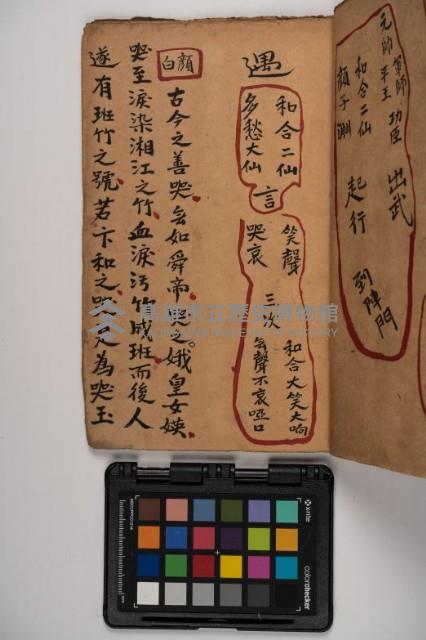 元帥 軍師
平王 功臣 出武
和合二仙
顏子淵 起行 到陣門
遇
和合二仙
多愁大仙
言
笑聲 和合大笑大响
哭哀 三次 会聲不哀啞口
顏白
古今之善哭会如舜帝哭之娥皇女媖
哭至淚染湘江之竹血淚汚竹成班而後人
遂有班竹之號若卞和之哭是為哭玉
高雄市立歷史博物館
x-rite
colorchecker